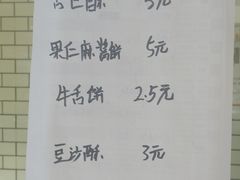 酥 5元
果仁麻酱饼 5元
牛舌饼 2.5元
豆沙酥 3元